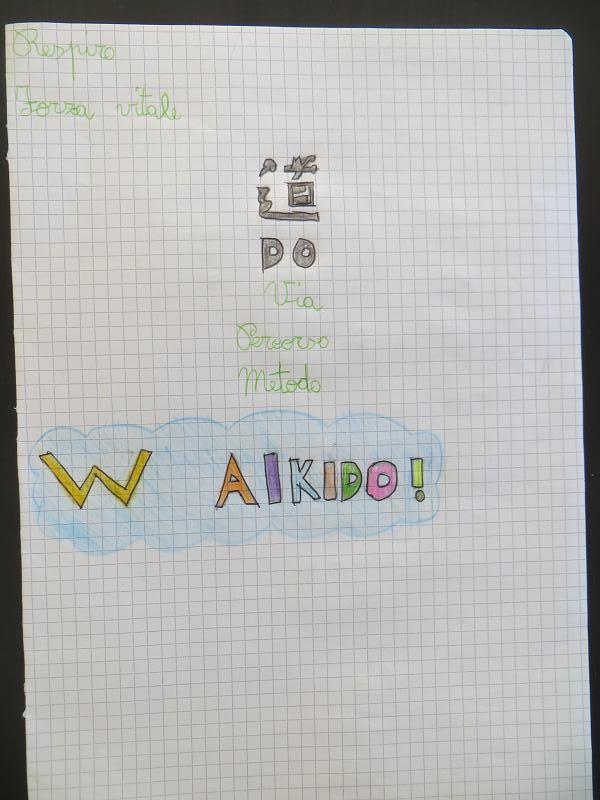 Respiro
Forza vitale
道
DO
Via
Percorso
Metodo
W AIKIDO!